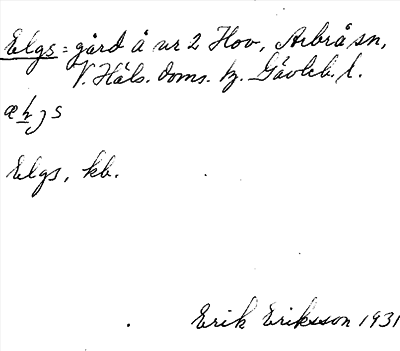 Elgs = gård å nr 2 Hov, Arbrå sn,
V. Häls. doms. hz. Gävleb. l.
Elgs, kb.
Erik Eriksson 1931